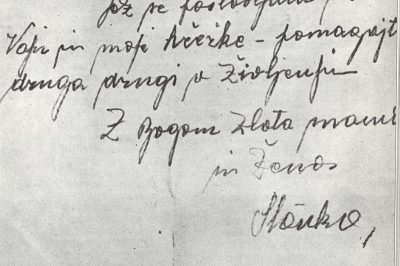 se
Vaši in moje hčerke - pomagajt
druga drugi v življenju
Z Bogom zlata
in Žena
Stanko,